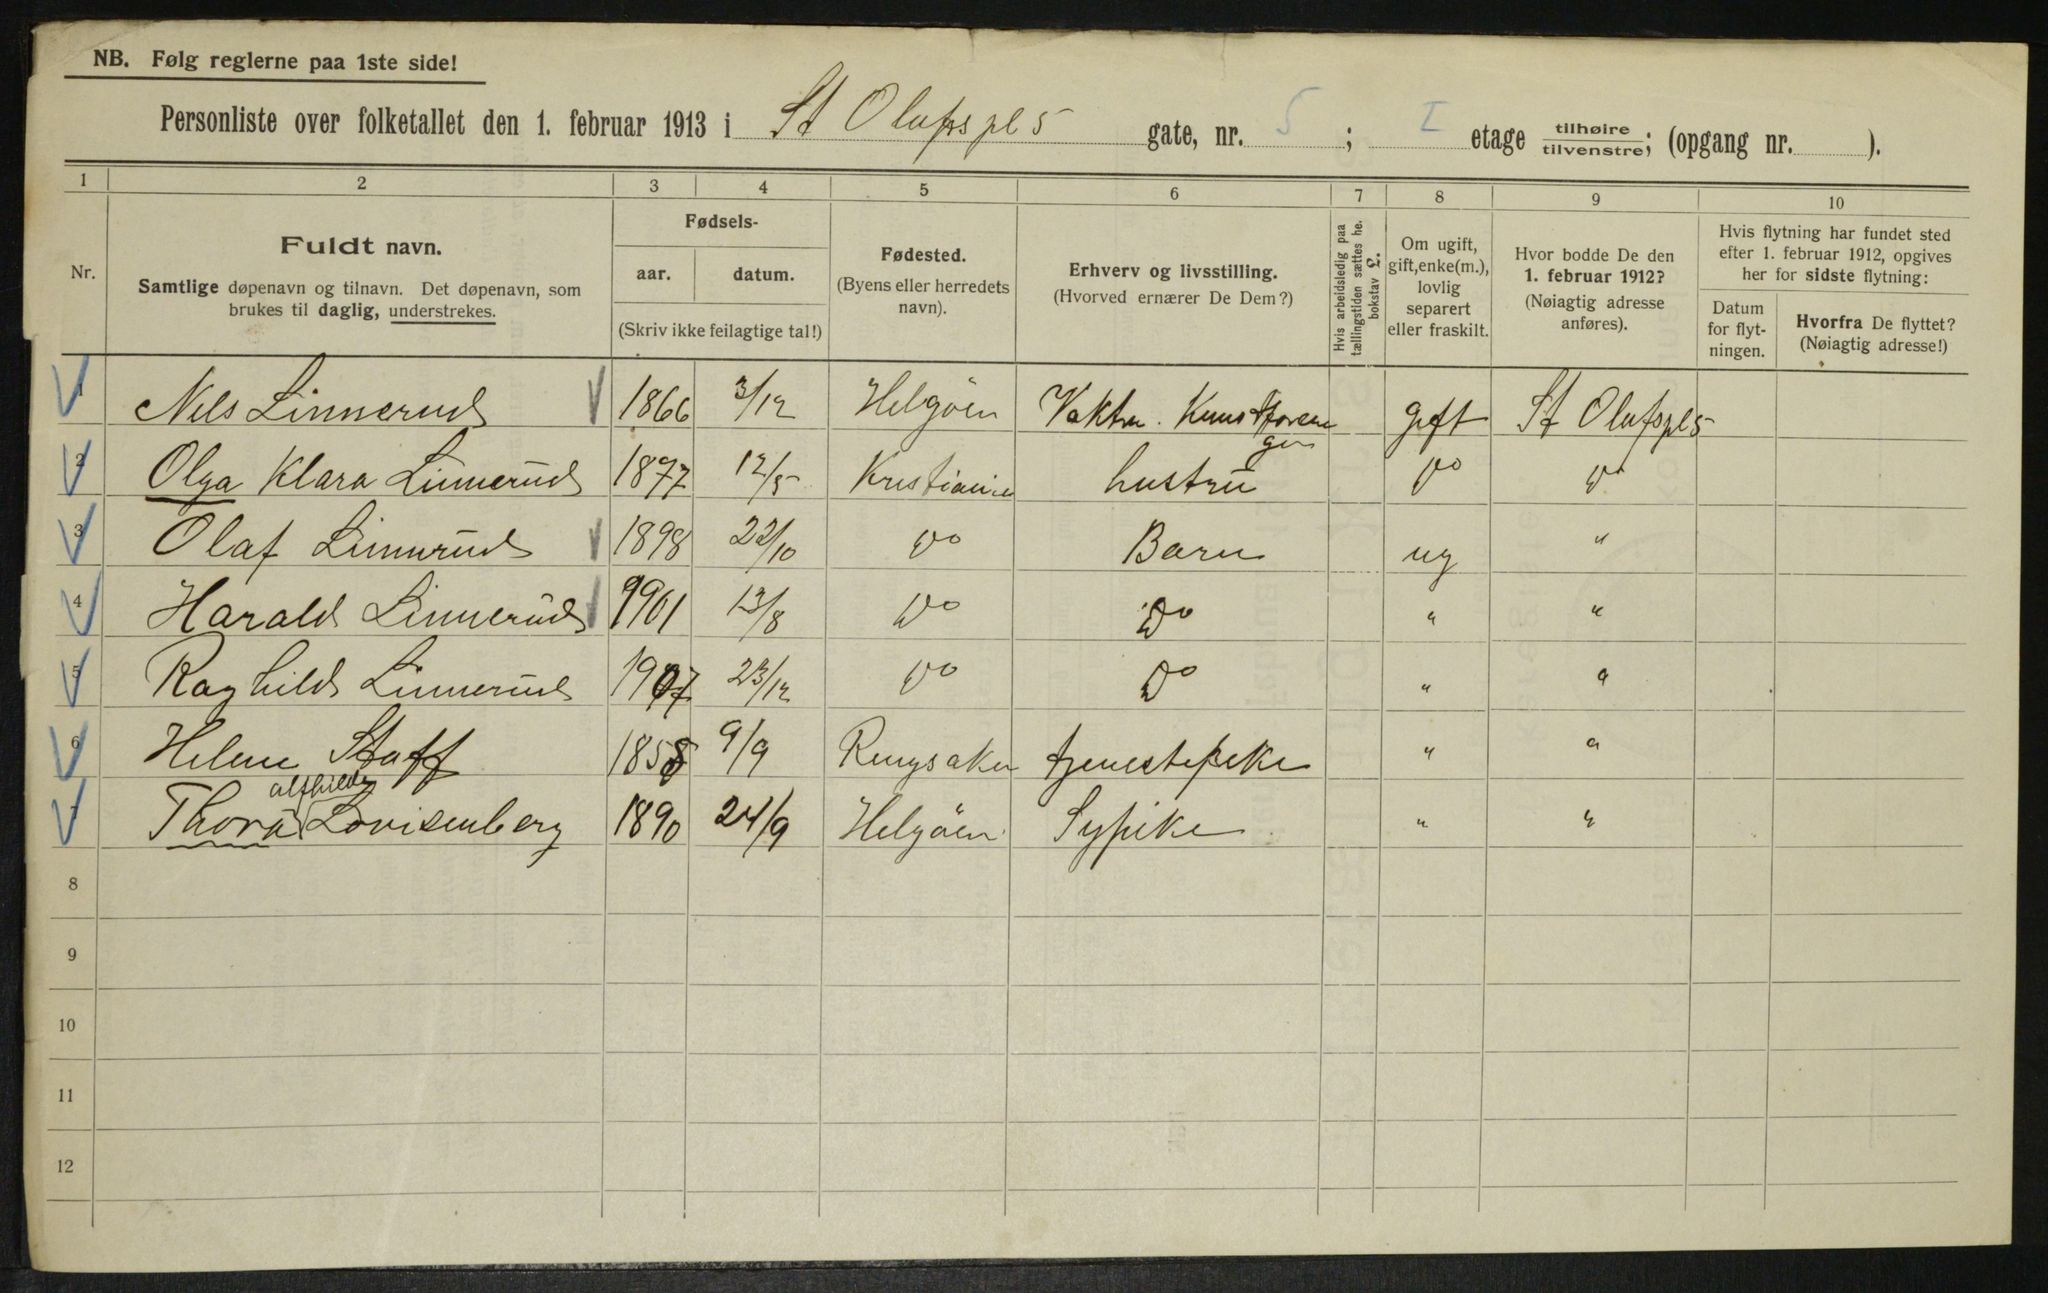 NB. Følg reglerne paa 1ste side!
Personliste over folketallet den 1. februar 1913 i St Olafspl 5 gate, nr. 5; I etage tilhøire tilvenstre; (opgang nr. ).
1 2 3 4 5 6 7 8 9 10
Nr.
Fuldt navn.
Samtlige døpenavn og tilnavn. Det døpenavn, som
brukes til daglig, understrekes.
Fødsels-
aar. datum.
(Skriv ikke feilagtige tal!)
Fødested.
(Byens eller herredets
navn).
Erhverv og livsstilling.
(Hvorved ernærer De Dem?)
Hvis arbeidsledig paa
tællingstiden sættes he.
bokstav L.
Om ugift,
gift, enke(m.),
lovlig
separert
eller fraskilt.
Hvor bodde De den
1. februar 1912?
(Nøiagtig adresse
anføres).
Hvis flytning har fundet sted
efter 1. februar 1912, opgives
her for sidste flytning:
Datum
for flyt-
ningen.
Hvorfra De flyttet?
(Nøiagtig adresse!)
1 Nels Linnerud 1866 3/12 Helgöen Vaktm. Kunstforenin gen gift St Olafspl 5
2 Olga Klara Linnerud 1877 12/5 Kristiania hustru Do Do
3 Olaf Linnerud 1898 22/10 Do Barn ug "
4 Harald Linnerud 1901 13/8 Do Do " "
5 Raghild Linnerud 1907 23/12 Do Do " "
6 Helene Staff 1858 9/9 Ringsaker tjenestepike " "
7 Thora alfhilde Lovisenberg 1890 24/9 Helgöen Sypike " "
8
9
10
11
12